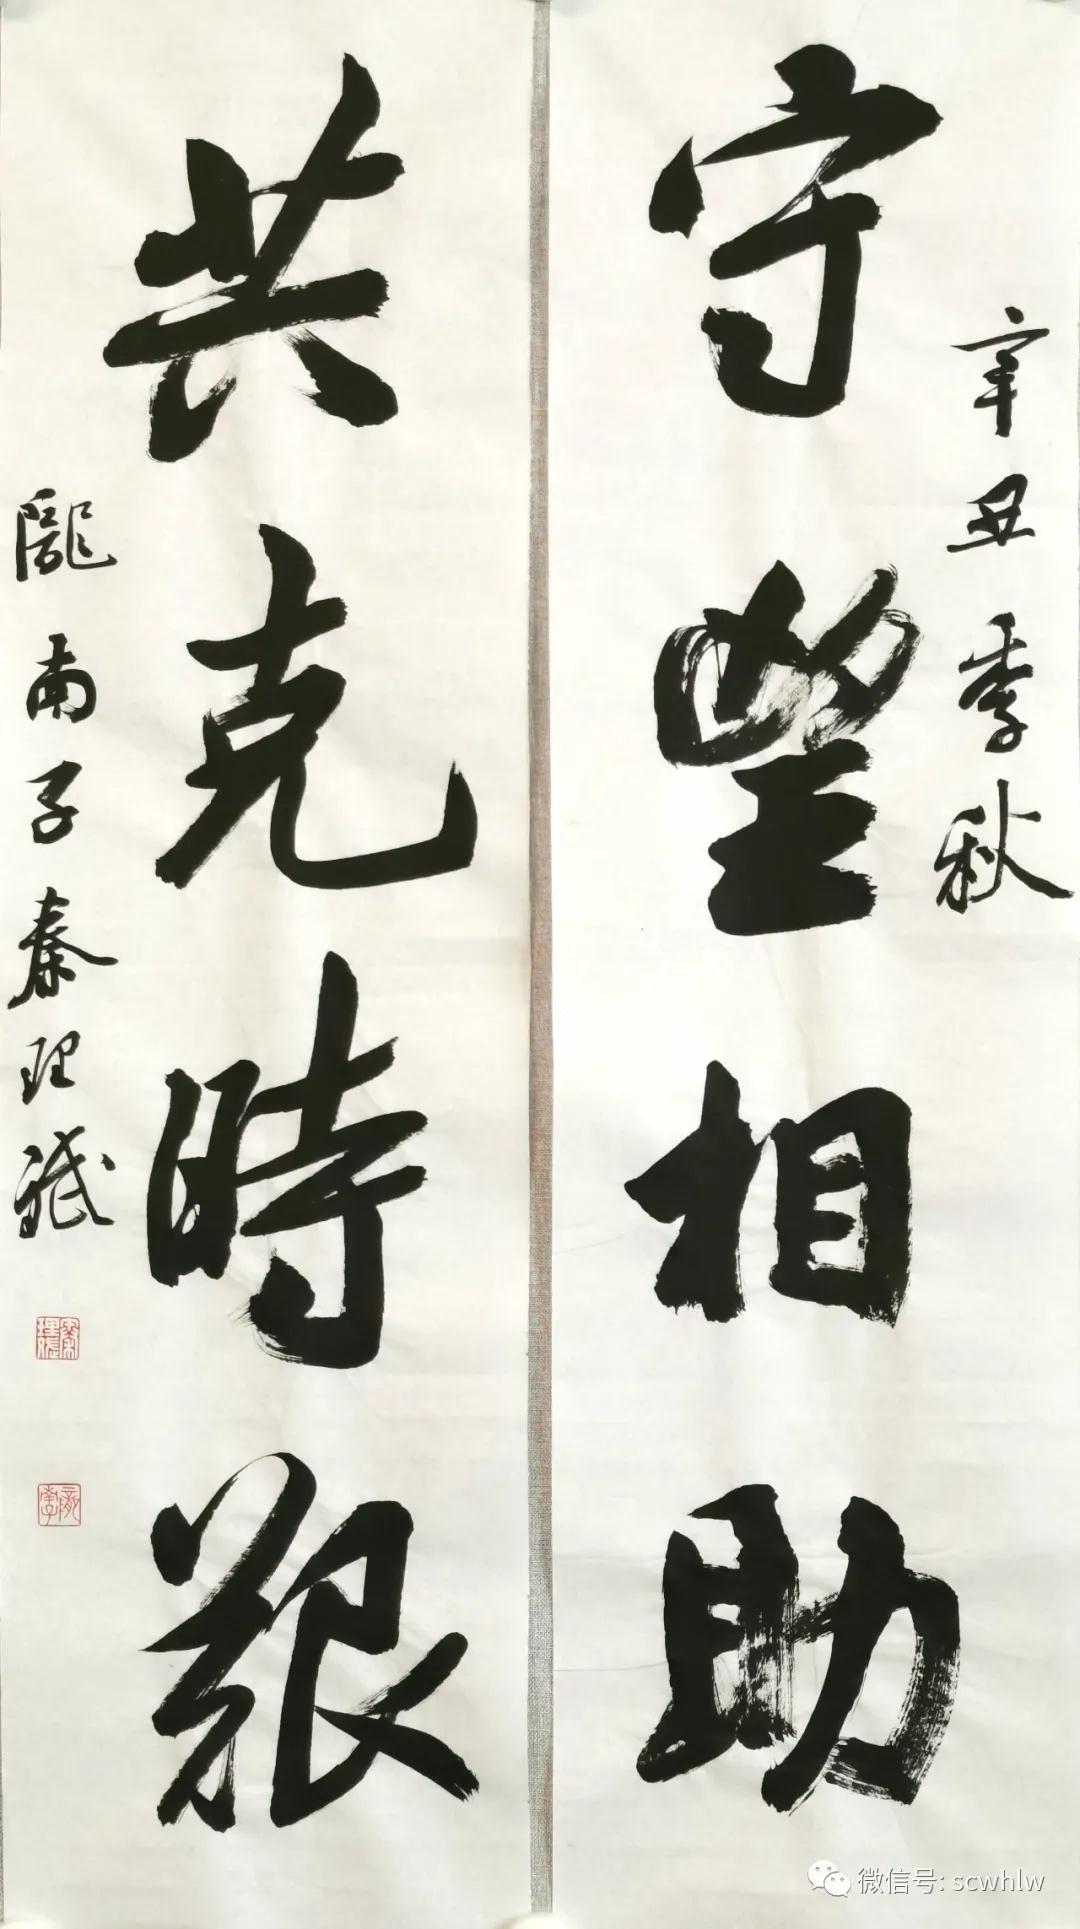 辛丑季秋
守望相助
共克時艱
隴南子秦理
微信号: scwhlw